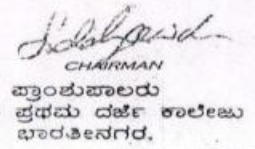 CHAIRMAN
ಪ್ರಾಂಶುಪಾಲರು
ಪ್ರಥಮ ದರ್ಜೆ ಕಾಲೇಜು
ಭಾರತೀನಗರ.